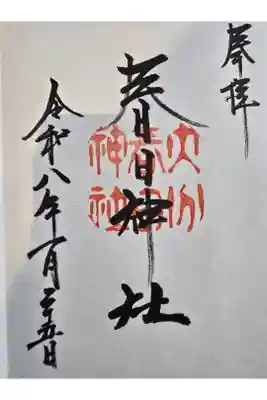 奉拝
春日神社
大分
春日
神社
令和八年一月二十五日